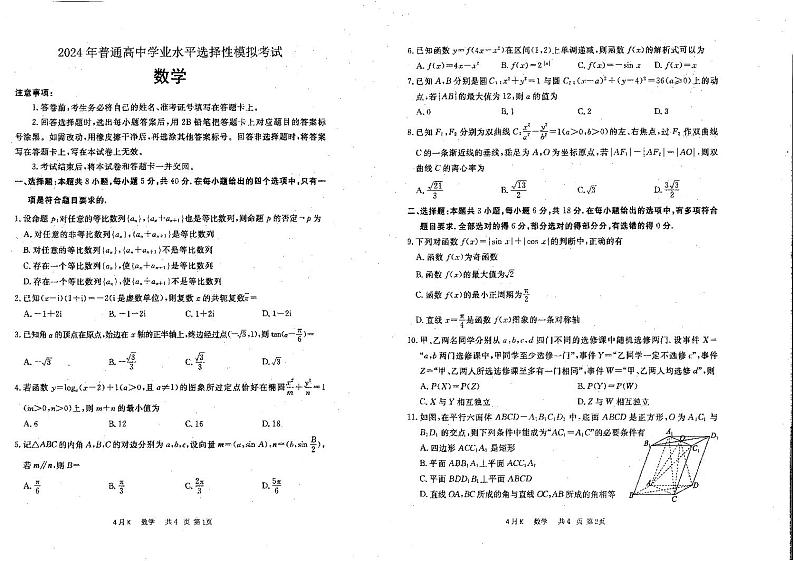 2024年普通高中学业水平选择性模拟考试
数学
注意事项：
1.答卷前,考生务必将自己的姓名、准考证号填写在答题卡上。
2.回答选择题时,选出每小题答案后,用2B铅笔把答题卡上对应题目的答案标
号涂黑。如需改动,用橡皮擦干净后,再选涂其他答案标号。回答非选择题时,将答案
写在答题卡上,写在本试卷上无效。
3.考试结束后,将本试卷和答题卡一并交回。
一、选择题:本题共8小题,每小题5分,共40分.在每小题给出的四个选项中,只有一
项是符合题目要求的.
1.设命题p:对任意的等比数列{aₙ},{aₙ+aₙ₊₁}也是等比数列,则命题p的否定¬p为
A.对任意的非等比数列{aₙ},{aₙ+aₙ₊₁}是等比数列
B.对任意的等比数列{aₙ},{aₙ+aₙ₊₁}不是等比数列
C.存在一个等比数列{aₙ},使{aₙ+aₙ₊₁}是等比数列
D.存在一个等比数列{aₙ},使{aₙ+aₙ₊₁}不是等比数列
2.已知(z-i)(1+i)=-2(i是虚数单位),则复数z的共轭复数z̄=
A.-1+2i B.-1-2i C.1+2i D.1-2i
3.已知角α的顶点在原点,始边在x轴的正半轴上,终边经过点(-√3,1),则tan(α-π/6)=
A.-√3 B.-√3/3 C.√3/3 D.√3
4.若函数y=logₐ(x-2)+1(a>0,且a≠1)的图象所过定点恰好在椭圆x²/m+y²/n=1
(m>0,n>0)上,则m+n的最小值为
A.6 B.12 C.16 D.18
5.记△ABC的内角A,B,C的对边分别为a,b,c,设向量m=(a,sin A),n=(b,sin B/2),
若m∥n,则B=
A.π/6 B.π/3 C.2π/3 D.5π/6
4月K 数学 共4页 第1页
6.已知函数y=f(4x-x²)在区间(1,2)上单调递减,则函数f(x)的解析式可以为
A.f(x)=4x-x² B.f(x)=2^|x| C.f(x)=-sin x D.f(x)=x
7.已知A,B分别是圆C₁:x²+y²=1与圆C₂:(x-a)²+(y-4)²=36(a≥0)上的动
点,若|AB|的最大值为12,则a的值为
A.0 B.1 C.2 D.3
8.已知F₁,F₂分别为双曲线C:x²/a²-y²/b²=1(a>0,b>0)的左、右焦点,过F₂作双曲线
C的一条渐近线的垂线,垂足为A,O为坐标原点,若|AF₁|-|AF₂|=|AO|,则双
曲线C的离心率为
A.√21/3 B.√13/2 C.√3 D.3√3/2
二、选择题:本题共3小题,每小题6分,共18分.在每小题给出的选项中,有多项符合
题目要求.全部选对的得6分,部分选对的得部分分,有选错的得0分.
9.下列对函数f(x)=|sin x|+|cos x|的判断中,正确的有
A.函数f(x)为奇函数
B.函数f(x)的最大值为√2
C.函数f(x)的最小正周期为π/2
D.直线x=π/4是函数f(x)图象的一条对称轴
10.甲、乙两名同学分别从a,b,c,d四门不同的选修课中随机选修两门.设事件X=
“a,b两门选修课中,甲同学至少选修一门”,事件Y=“乙同学一定不选修c”,事件
Z=“甲、乙两人所选选修课至多有一门相同”,事件W=“甲、乙两人均选修d”,则
A.P(X)=P(Z) B.P(Y)=P(W)
C.X与Y相互独立 D.Z与W相互独立
11.如图,在平行六面体ABCD-A₁B₁C₁D₁中,底面ABCD是正方形,O为A₁C₁与
B₁D₁的交点,则下列条件中能成为“AC₁=A₁C”的必要条件有
A.四边形ACC₁A₁是矩形
B.平面ABB₁A₁⊥平面ACC₁A₁
C.平面BDD₁B₁⊥平面ABCD
D.直线OA,BC所成的角与直线OC,AB所成的角相等
A₁
D₁
B₁
C₁
O
A
D
B
C
4月K 数学 共4页 第2页